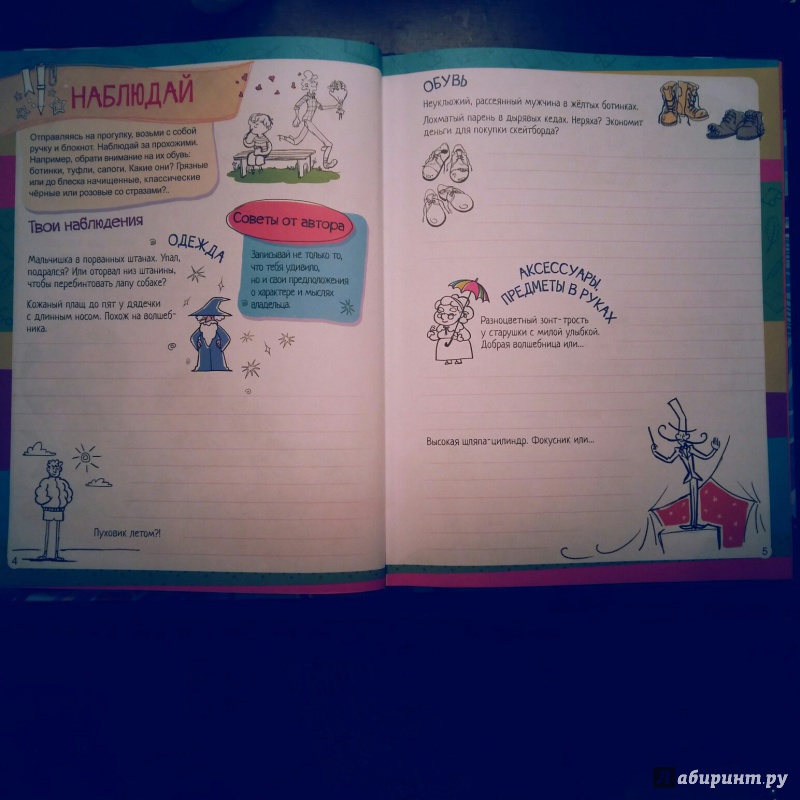 НАБЛЮДАЙ
Отправляясь на прогулку, возьми с собой
ручку и блокнот. Наблюдай за прохожими.
Например, обрати внимание на их обувь:
ботинки, туфли, сапоги. Какие они? Грязные
или до блеска начищенные, классические
чёрные или розовые со стразами?..
Твои наблюдения
Советы от автора
Записывай не только то,
что тебя удивило,
но и свои предположения
о характере и мыслях
владельца.
ОДЕЖДА
Мальчишка в порванных штанах. Упал,
подрался? Или оторвал низ штанины,
чтобы перебинтовать лапу собаке?
Кожаный плащ до пят у дядечки
с длинным носом. Похож на волшеб-
ника.
Пуховик летом?!
4
ОБУВЬ
Неуклюжий, рассеянный мужчина в жёлтых ботинках.
Лохматый парень в дырявых кедах. Неряха? Экономит
деньги для покупки скейтборда?
АКСЕССУАРЫ,
ПРЕДМЕТЫ В РУКАХ
Разноцветный зонт-трость
у старушки с милой улыбкой.
Добрая волшебница или...
Высокая шляпа-цилиндр. Фокусник или...
5
Лабиринт.ру